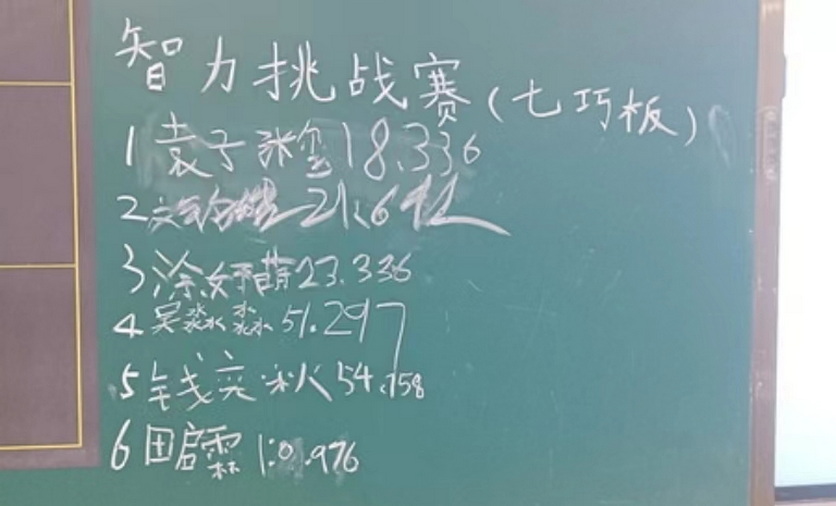 智力挑战赛(七巧板)
1 袁子 18.336
2 21.6
3 涂好萌 23.336
4 吴淼淼 51.297
5 钱奕 54.758
6 田启霖 1:0 .976